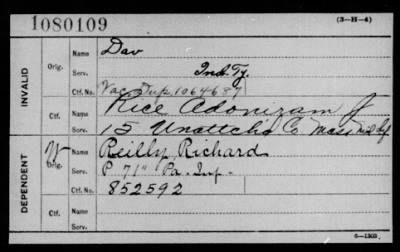 1080109
(3-H-4)
INVALID
Orig.
Name Dav
Serv. Ind. Ty.
Ctf. No. Vac Dup. 1064687
Ctf.
Name Rice Adoniram J
Serv. 15 Unattchd Co Mass Inf
DEPENDENT
W Orig.
Name Reilly, Richard
Serv. P 71" Pa. Inf.
Ctf. No. 852592
Ctf.
Name
Serv.
6—1303